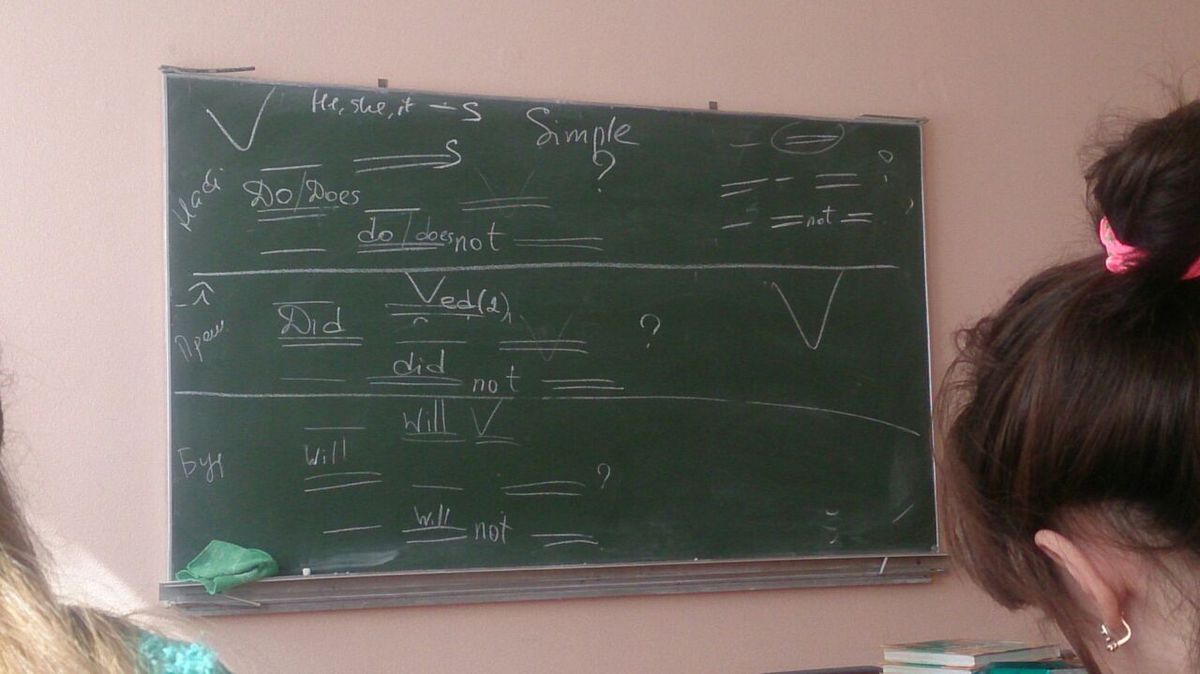 V He, she, it – s
Simple
S
?
Do/Does
do/does not
not
Ved(2)
V
Did
?
did not
will V
Буд
will
?
will not